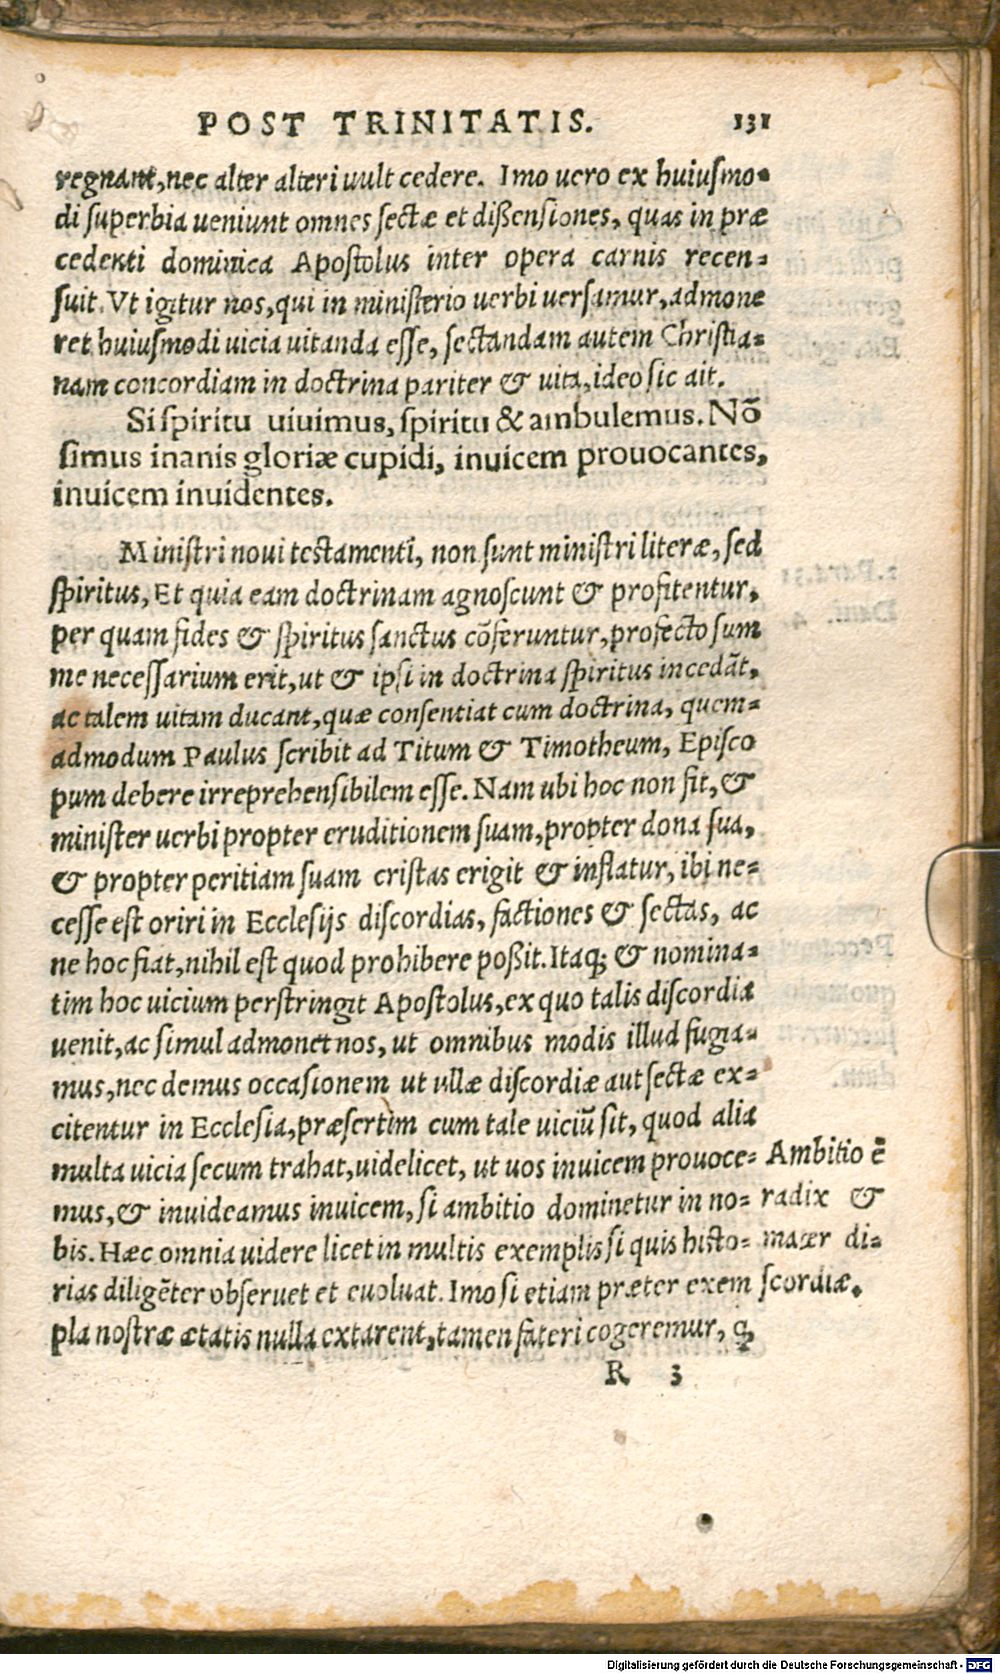 POST TRINITATIS. 131
regnant, nec alter alteri uult cedere. Imo uero ex huiusmo-
di superbia ueniunt omnes sectæ et dißensiones, quas in præ
cedenti dominica Apostolus inter opera carnis recen-
suit. Vt igitur nos, qui in ministerio uerbi uersamur, admone
ret huiusmodi uicia uitanda esse, sectandam autem Christia-
nam concordiam in doctrina pariter & uita, ideo sic ait.
Si spiritu uiuimus, spiritu & ambulemus. Nō
simus inanis gloriæ cupidi, inuicem prouocantes,
inuicem inuidentes.
Ministri noui testamenti, non sunt ministri literæ, sed
spiritus, Et quia eam doctrinam agnoscunt & profitentur,
per quam fides & spiritus sanctus cōferuntur, profecto sum
me necessarium erit, ut & ipsi in doctrina spiritus incedāt,
ac talem uitam ducant, quæ consentiat cum doctrina, quem-
admodum Paulus scribit ad Titum & Timotheum, Episco
pum debere irreprehensibilem esse. Nam ubi hoc non fit, &
minister uerbi propter eruditionem suam, propter dona sua,
& propter peritiam suam cristas erigit & inflatur, ibi ne-
cesse est oriri in Ecclesijs discordias, factiones & sectas, ac
ne hoc fiat, nihil est quod prohibere poßit. Itaq; & nomina-
tim hoc uicium perstringit Apostolus, ex quo talis discordia
uenit, ac simul admonet nos, ut omnibus modis illud fugia-
mus, nec demus occasionem ut ullæ discordiæ aut sectæ ex-
citentur in Ecclesia, præsertim cum tale uiciū sit, quod alia
multa uicia secum trahat, uidelicet, ut uos inuicem prouoce-
mus, & inuideamus inuicem, si ambitio dominetur in no-
bis. Hæc omnia uidere licet in multis exemplis si quis histo-
rias diligēter obseruet et euoluat. Imo si etiam præter exem
pla nostræ ætatis nulla extarent, tamen fateri cogeremur, ꝙ
Ambitio ē
radix &
mater di-
scordiæ.
R 3
Digitalisierung gefördert durch die Deutsche Forschungsgemeinschaft - DFG